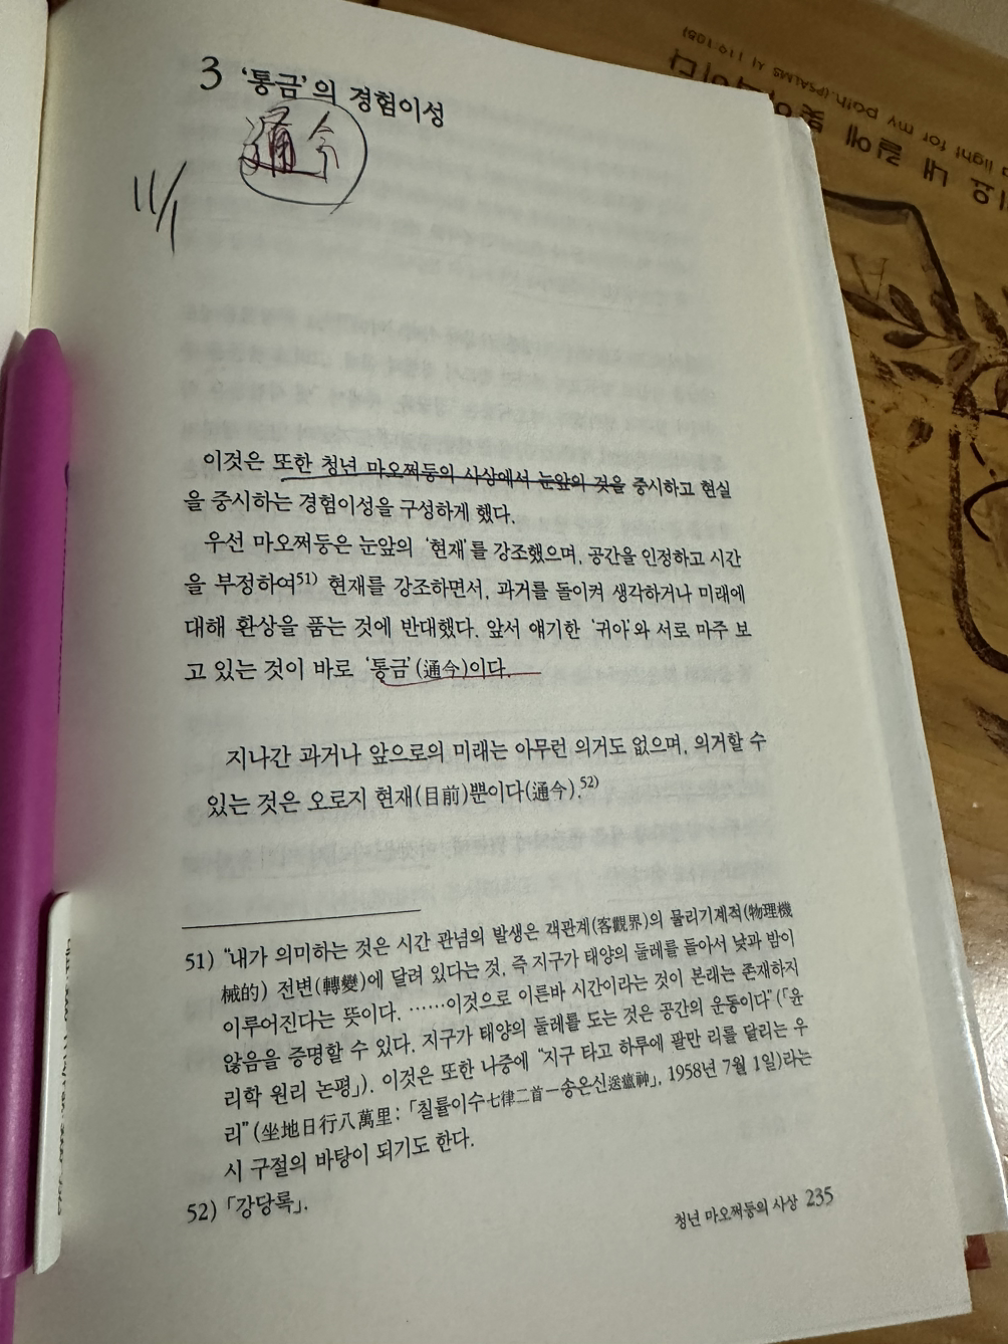 3 '통금'의 경험이성
通今
11/1
이것은 또한 청년 마오쩌둥의 사상에서 눈앞의 것을 중시하고 현실
을 중시하는 경험이성을 구성하게 했다.
우선 마오쩌둥은 눈앞의 '현재'를 강조했으며, 공간을 인정하고 시간
을 부정하여51) 현재를 강조하면서, 과거를 돌이켜 생각하거나 미래에
대해 환상을 품는 것에 반대했다. 앞서 얘기한 '귀아'와 서로 마주 보
고 있는 것이 바로 '통금'(通今)이다.
지나간 과거나 앞으로의 미래는 아무런 의거도 없으며, 의거할 수
있는 것은 오로지 현재(目前)뿐이다(通今).52)
51) "내가 의미하는 것은 시간 관념의 발생은 객관계(客觀界)의 물리기계적(物理機
械的) 전변(轉變)에 달려 있다는 것, 즉 지구가 태양의 둘레를 돌아서 낮과 밤이
이루어진다는 뜻이다. ……이것으로 이른바 시간이라는 것이 본래는 존재하지
않음을 증명할 수 있다. 지구가 태양의 둘레를 도는 것은 공간의 운동이다"(「윤
리학 원리 논평」). 이것은 또한 나중에 "지구 타고 하루에 팔만 리를 달리는 우
리"(坐地日行八萬里: 「칠률이수七律二首―송온신送瘟神」, 1958년 7월 1일)라는
시 구절의 바탕이 되기도 한다.
52) 「강당록」.
청년 마오쩌둥의 사상 235
light for my path. (PSALMS 시 119:105)
요 내 길에 빛이니이다